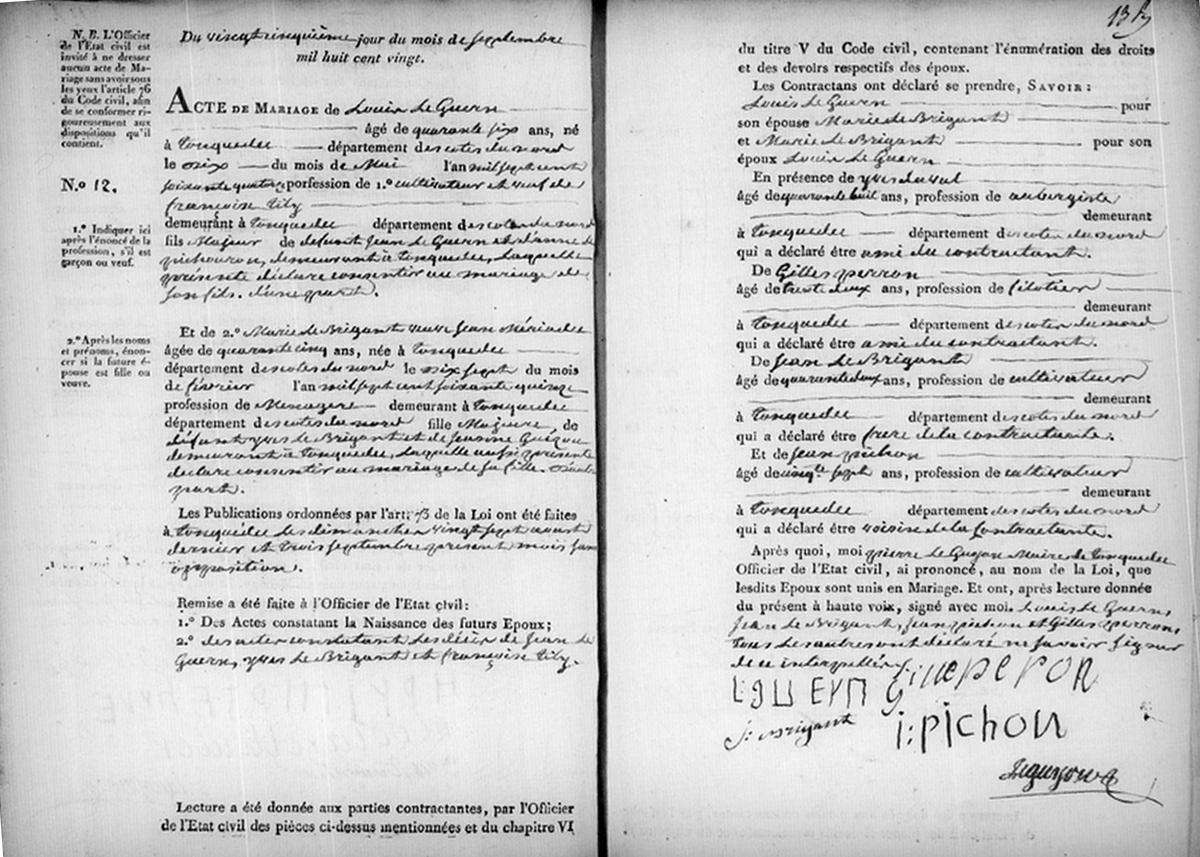 N. B. L'Officier
de l'Etat civil est
invité à ne dresser
aucun acte de Ma-
riage sans avoir sous
les yeux l'article 76
du Code civil, afin
de se conformer ri-
goureusement aux
dispositions qu'il
contient.
N.o 12.
1.o Indiquer ici
après l'énoncé de la
profession, s'il est
garçon ou veuf.
2.o Après les noms
et prénoms, énon-
cer si la future é-
pouse est fille ou
veuve.
Du vingt cinquième jour du mois de septembre
mil huit cent vingt.
ACTE DE MARIAGE de Louis Le Guern
âgé de quarante six ans, né
à tonquedec département des cotes du nord
le du mois de Mai l'an mil sept cent
soixante quatorze porfession de 1.o cultivateur et veuf de
françoise tily
demeurant à tonquedec département des cotes du nord
fils Majeur de defunt Jean Le Guern et d'anne Le
pichouron, demeurant à tonquedec, laquelle
présente declare consentir au mariage de
son fils. d'une part.
Et de 2.o Marie Le Brigant veuve Jean Mériadec
âgée de quarante cinq ans, née à tonquedec
département des cotes du nord le dix sept du mois
de février l'an mil sept cent soixante quinze
profession de Menagere demeurant à tonquedec
département des cotes du nord fille Majeure de
défunt yves Le Brigant et de Jeanne
demeurant à tonquedec, laquelle aussi présente
declare consentir au mariage de sa fille. d'autre
part.
Les Publications ordonnées par l'art. 73 de la Loi ont été faites
à tonquédec les dimanches vingt sept aoust
dernier et trois septembre present mois sans
opposition.
Remise a été faite à l'Officier de l'Etat civil:
1.o Des Actes constatant la Naissance des futurs Epoux;
2.o des actes constatant les décès de Jean Le
Guern, yves Le Brigant et françoise tily.
Lecture a été donnée aux parties contractantes, par l'Officier
de l'Etat civil des pièces ci-dessus mentionnées et du chapitre VI
13
du titre V du Code civil, contenant l'énumération des droits
et des devoirs respectifs des époux.
Les Contractans ont déclaré se prendre, SAVOIR:
Louis Le Guern pour
son épouse Marie Le Brigant
et Marie Le Brigant pour son
époux Louis Le Guern
En présence de yves duval
âgé de quarante huit ans, profession de aubergiste
demeurant
à tonquedec département des cotes du nord
qui a déclaré être ami du contractant.
De Gilles perron
âgé de trente deux ans, profession de filotier
demeurant
à tonquedec département des cotes du nord
qui a déclaré être ami du contractant.
De Jean Le Brigant
âgé de quarante deux ans, profession de cultivateur
demeurant
à tonquedec département des cotes du nord
qui a déclaré être frere de la contractante.
Et de Jean pichon
âgé de cinq.te sept ans, profession de cultivateur
demeurant
à tonquedec département des cotes du nord
qui a déclaré être voisin de la contractante.
Après quoi, moi pierre Le Maire de tonquedec
Officier de l'Etat civil, ai prononcé, au nom de la Loi, que
lesdits Epoux sont unis en Mariage. Et ont, après lecture donnée
du présent à haute voix, signé avec moi. Louis Le Guern,
Jean Le Brigant, Jean pichon et Gilles perron,
tous les autres ont déclaré ne savoir signer
de ce interpellés.
J: Brigant
i: pichon